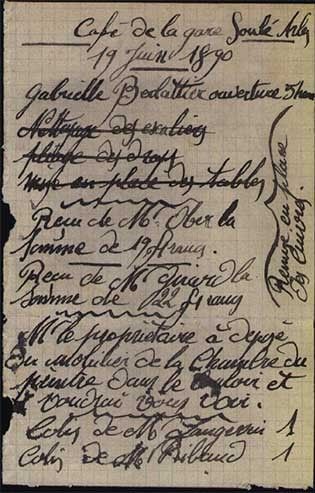 Café de la gare Soulé Arles
19 Juin 1890
Gabrielle ouverture 5 heure
Nettoyage des escaliers
pliage des draps
mise en place des tables
Remise en place
des
Recu de Mr Ober la
somme de 19 francs.
Recu de M la
somme de 22 francs
M le propriétaire à déposé
Du mobilier de la Chambre du
peintre dans le couloir et
voudrai vous voir.
Colis de Mr 1
Colis de Mr 1